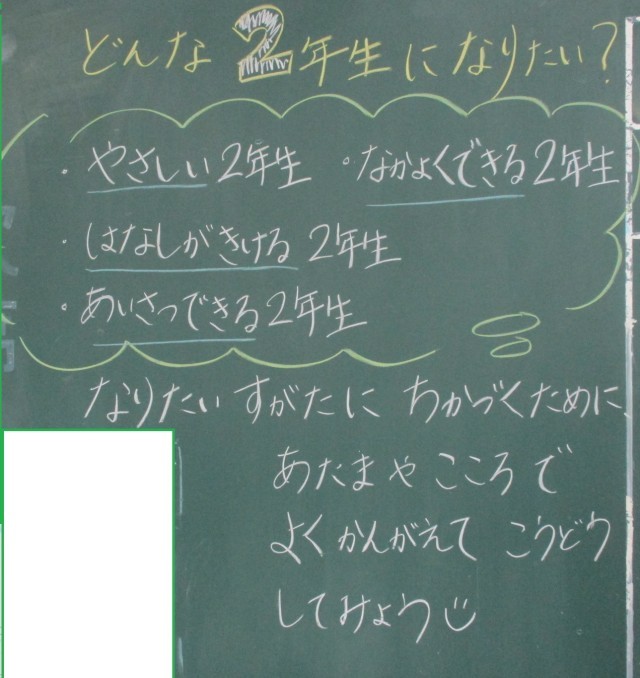 どんな2年生になりたい?
・やさしい2年生 ・なかよくできる2年生
・はなしがきける2年生
・あいさつできる2年生
なりたい すがたに ちかづくために
あたまや こころで
よく かんがえて こうどう
してみよう